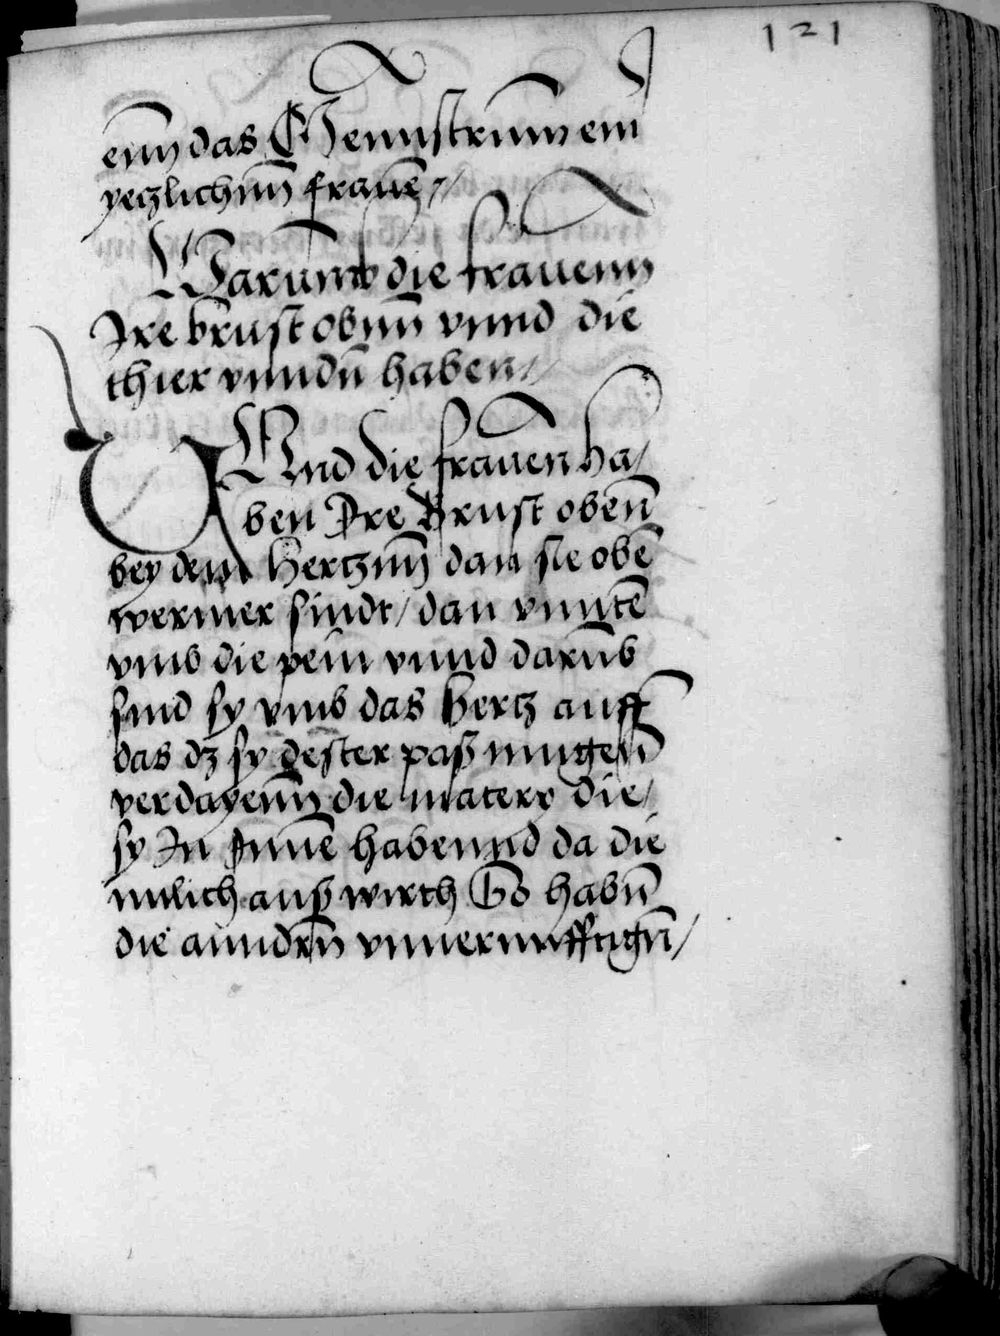 121
enn das Mennstrum ein
yetzlichnn frauē //
Warumb die frauenn
Jre brust obnn vnnd die
thier vnndn̄ haben //
Vnd die frauen ha/
ben Jre Brust obenn̄
bey dem Hertznn dan sie obē
wermer sindt / dan vnntē
vmb die pein vnnd darūb
sind sy vmb das Hertz auff
das dz sy dester paß mugen̄
verdayenn die matery die /
sy Jn Jnnē habennd da die
milich auß wirth So habn̄
die anndrn̄ vnuernufftign̄ /